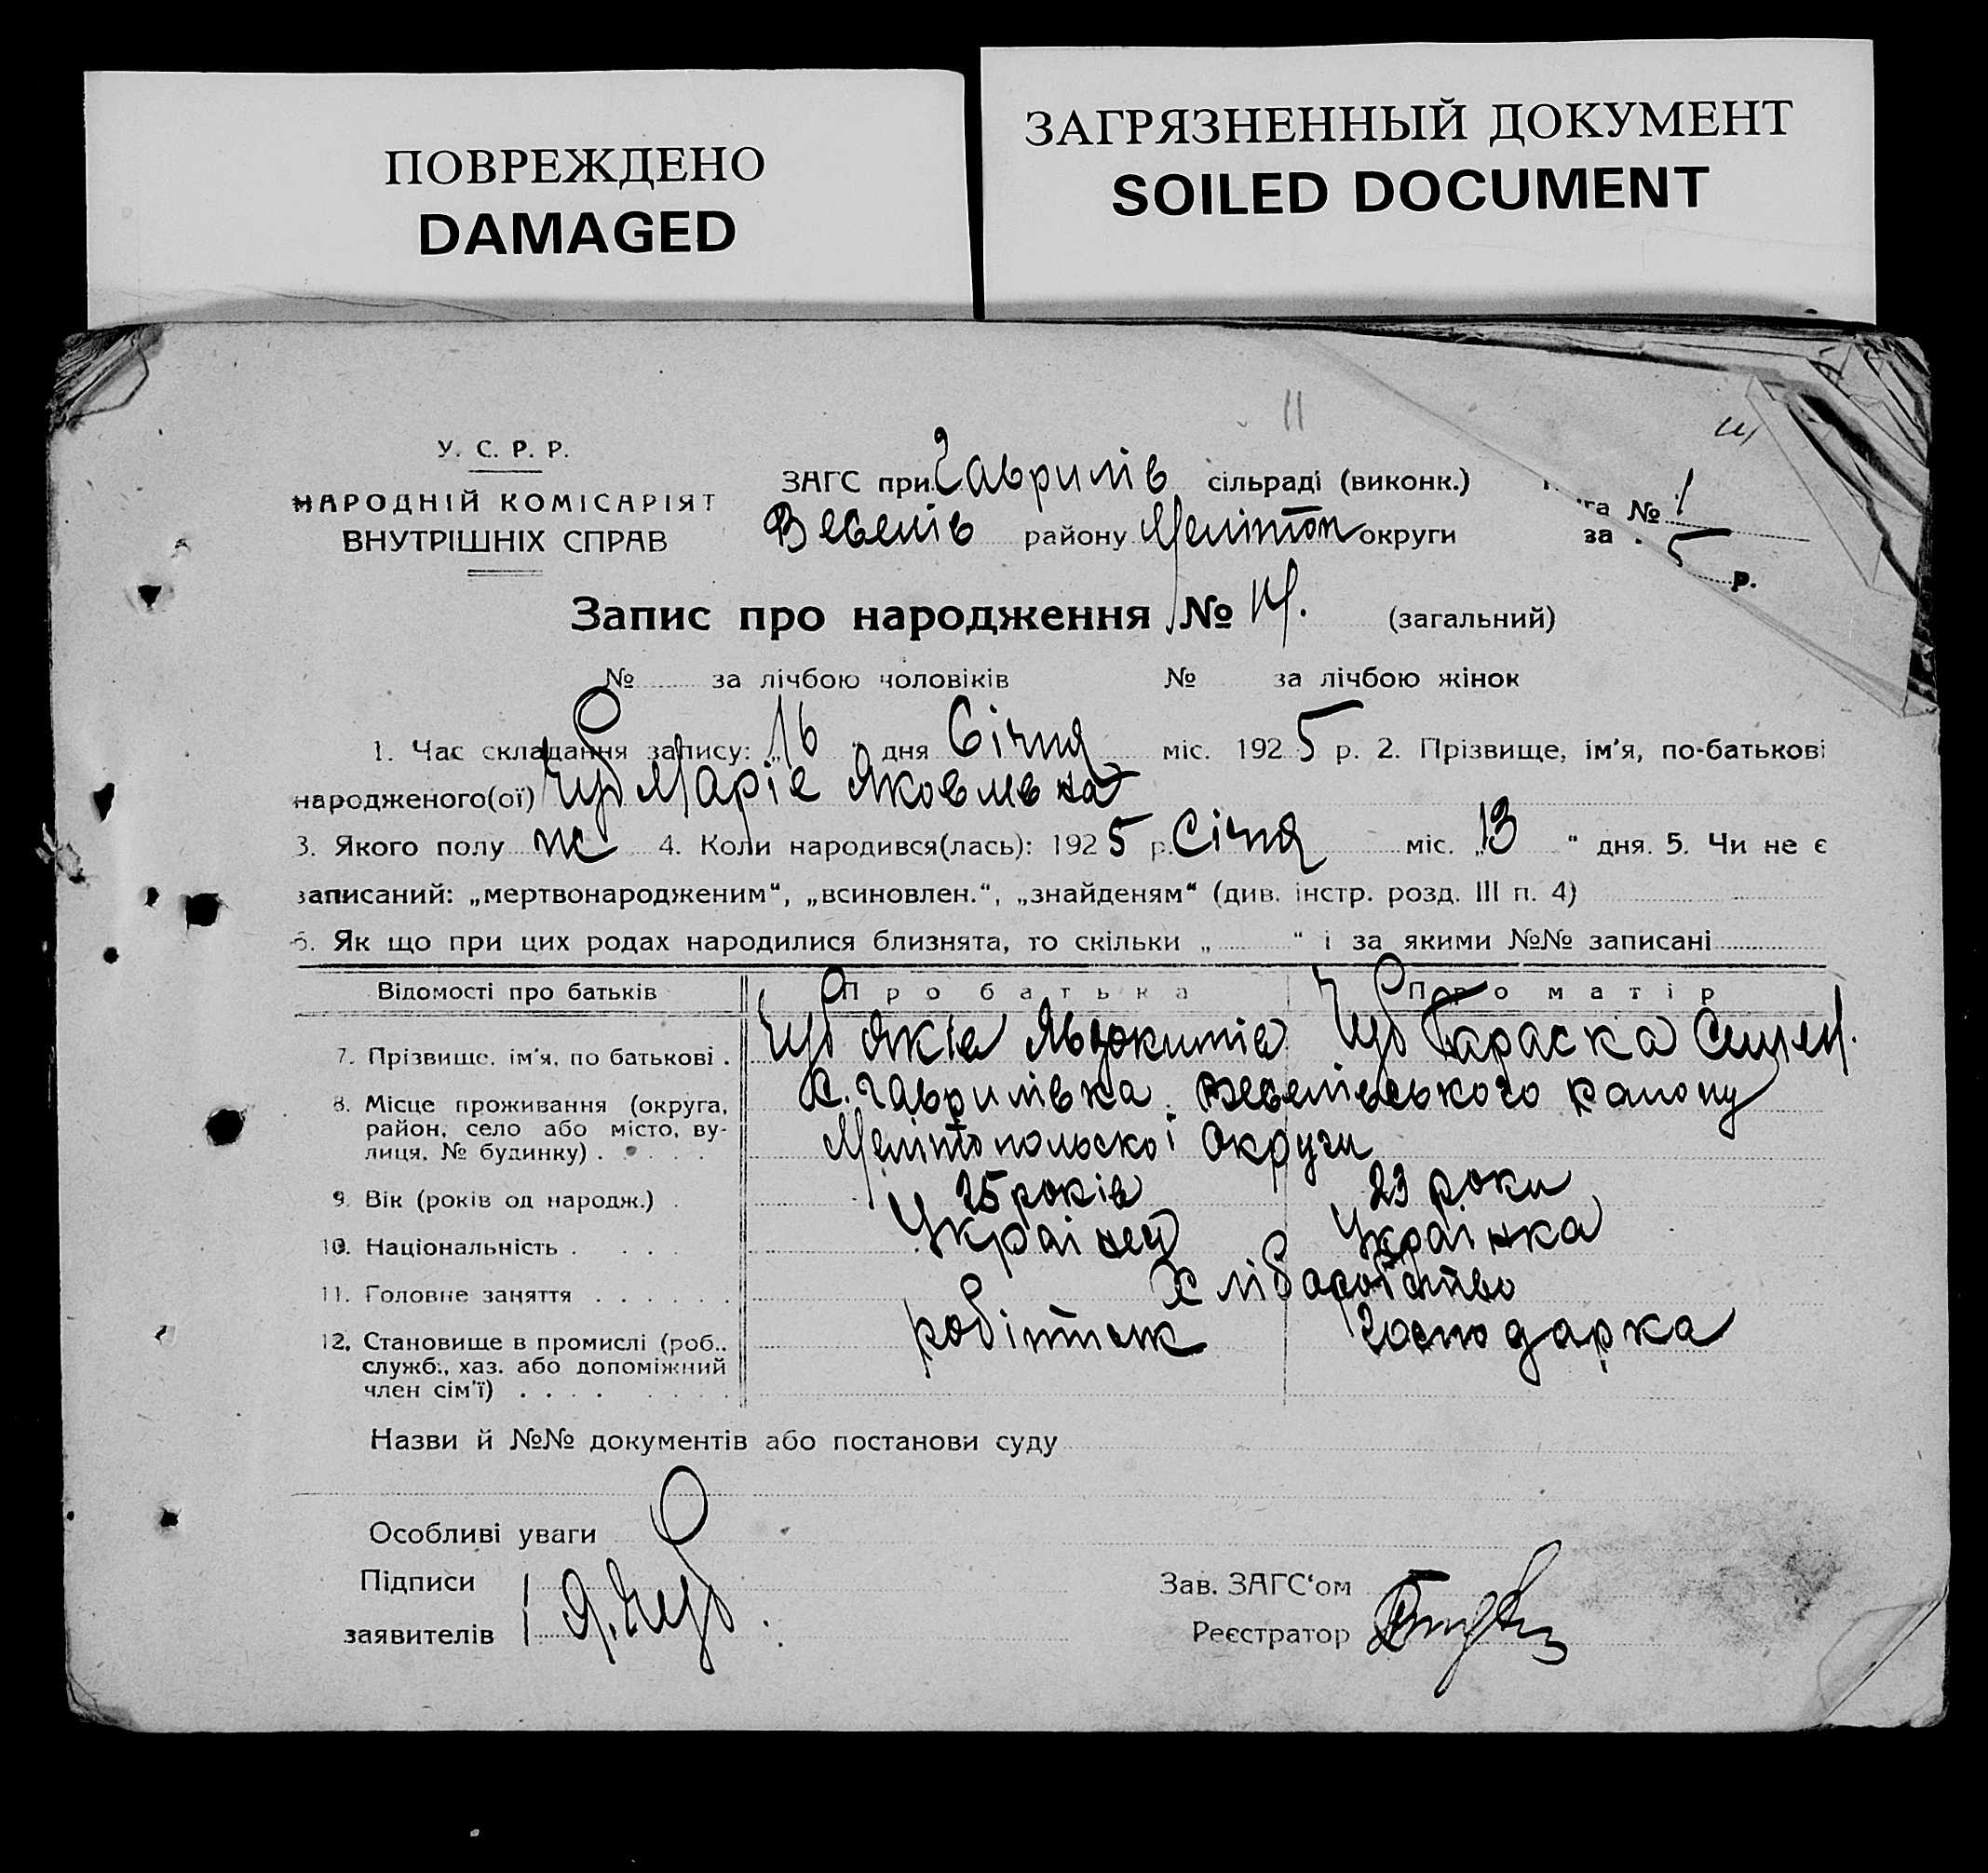 ПОВРЕЖДЕНО
DAMAGED
ЗАГРЯЗНЕННЫЙ ДОКУМЕНТ
SOILED DOCUMENT
11
У. С. Р. Р.
НАРОДНІЙ КОМІСАРІЯТ
ВНУТРІШНІХ СПРАВ
ЗАГС при Гаврилів сільраді (виконк.)
Веселів району Мелітоп округи
га № 1
за 5 р.
Запис про народження № 14. (загальний)
№ за лічбою чоловіків № за лічбою жінок
1. Час складання запису: „16 " дня Січня міс. 1925 р. 2. Прізвище, ім'я, по-батькові
народженого(ої) Чуб Маріе Яковлевна
3. Якого полу ж 4. Коли народився(лась): 1925 р. Січня міс. „13 " дня. 5. Чи не є
записаний: „мертвонародженим", „всиновлен.", „знайденям" (див. інстр. розд. III п. 4)
6. Як що при цих родах народилися близнята, то скільки „ " і за якими №№ записані
Відомості про батьків Про батька Про матір
7. Прізвище, ім'я, по батькові . Чуб Яків Явдокитів Чуб Параска
8. Місце проживання (округа, район, село або місто, вулиця, № будинку) . . . . . с. Гаврилівка Веселівського району
Мелітопольскоі Округи
9. Вік (років од народж.) . 25 років 23 роки
10. Національність . . . . Українец Українка
11. Головне заняття . . . . . . Хліборобство
12. Становище в промислі (роб., служб., хаз. або допоміжний член сім'ї) . . . . . . . . робітник господарка
Назви й №№ документів або постанови суду
Особливі уваги
Підписи
заявителів Я. Чуб
Зав. ЗАГС'ом
Реєстратор